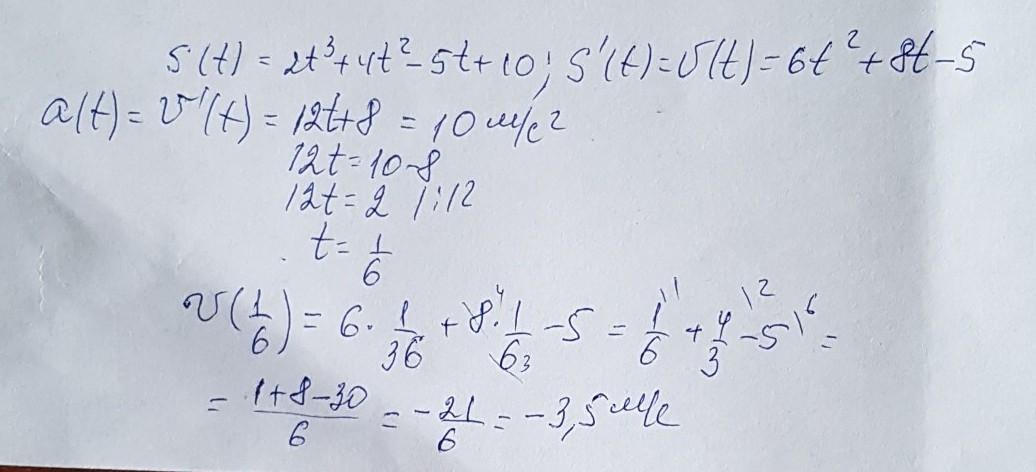 S(t) = 2t³+4t²-5t+10; S'(t)=υ(t)=6t²+8t-5
a(t)= υ'(t) = 12t+8 = 10 м/с²
12t=10-8
12t=2 |:12
t= 1/6
υ(1/6)= 6·1/36 + 8⁴·1/6₃ -5 = 1/6\¹ + 4/3\² -5\⁶ =
= (1+8-30)/6 = -21/6 = -3,5 м/с